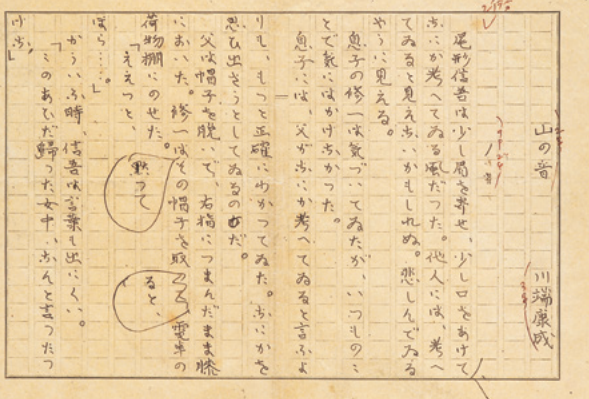 山の音
川端康成
尾形信吾は少し眉を寄せ、少し口をあけて
なにか考へてゐる風だつた。他人には、考へ
てゐると見えないかもしれぬ。悲しんでゐる
やうに見える。
息子の修一は気づいてゐたが、いつものこ
とで気にはかけなかつた。
息子には、父がなにか考へてゐると言ふよ
りも、もつと正確にわかつてゐた。なにかを
思ひ出さうとしてゐるのだ。
父は帽子を脱いで、右指につまんだまま膝
においた。修一は黙つてその帽子を取ると、電車の
荷物棚にのせた。
「ええつと、
ほら……。」
かういふ時、信吾は言葉も出にくい。
「このあひだ帰つた女中、なんと言つたつ
けな。」